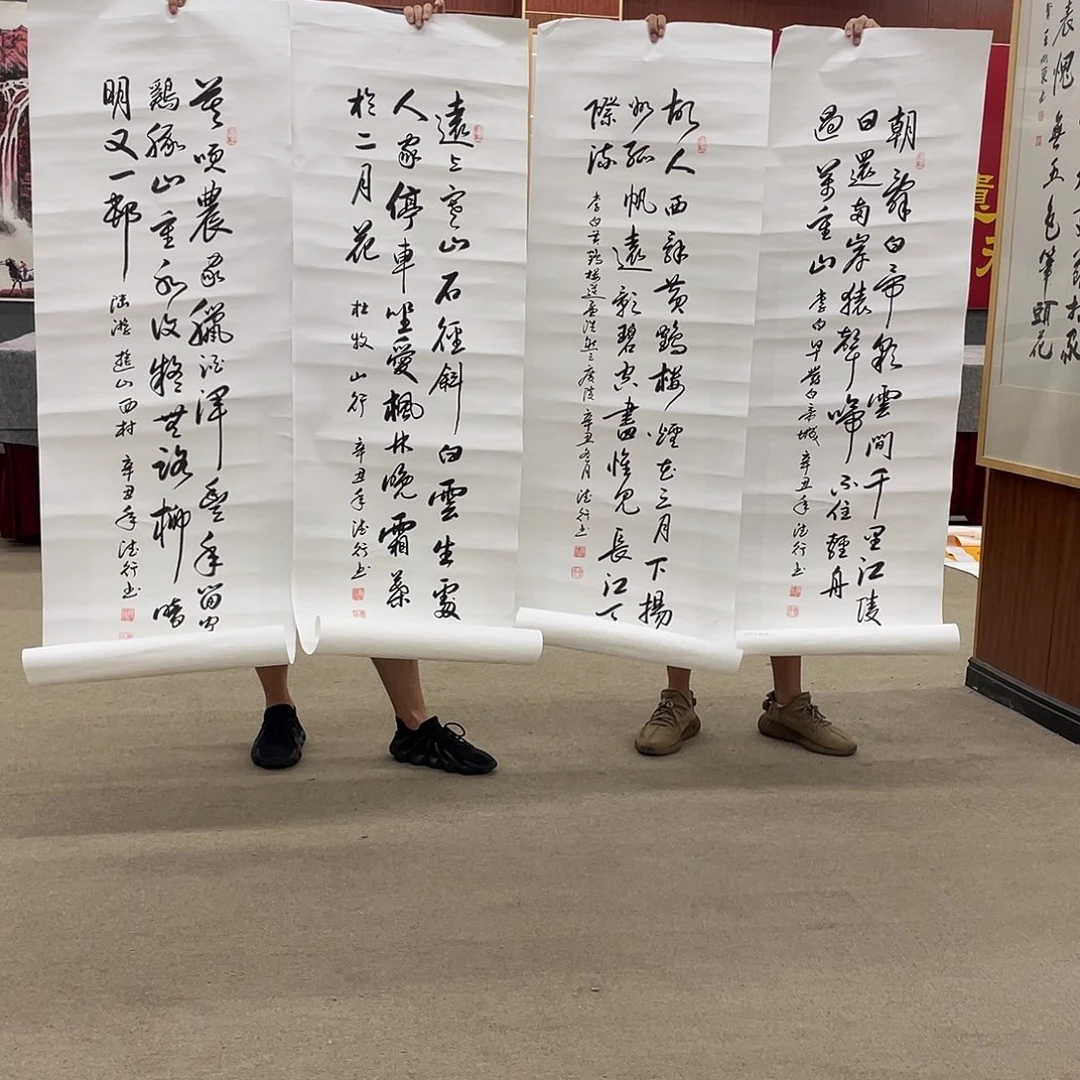 愧無五色筆頭花
朝辭白帝彩雲間千里江陵
日還兩岸猿聲啼不住輕舟
過萬重山 李白早發白帝城 辛丑年德行书
故人西辭黃鶴樓煙花三月下揚
州孤帆遠影碧空盡惟見長江天
際流 李白黃鶴樓送孟浩然之廣陵 辛丑 月 德行书
遠上寒山石徑斜白雲生處
人家停車坐愛楓林晚霜葉
於二月花 杜牧 山行 辛丑年德行书
莫笑農家臘酒渾豐年留客
鷄豚山重水複疑無路柳暗
明又一邨 陸游 遊山西村 辛丑年德行书